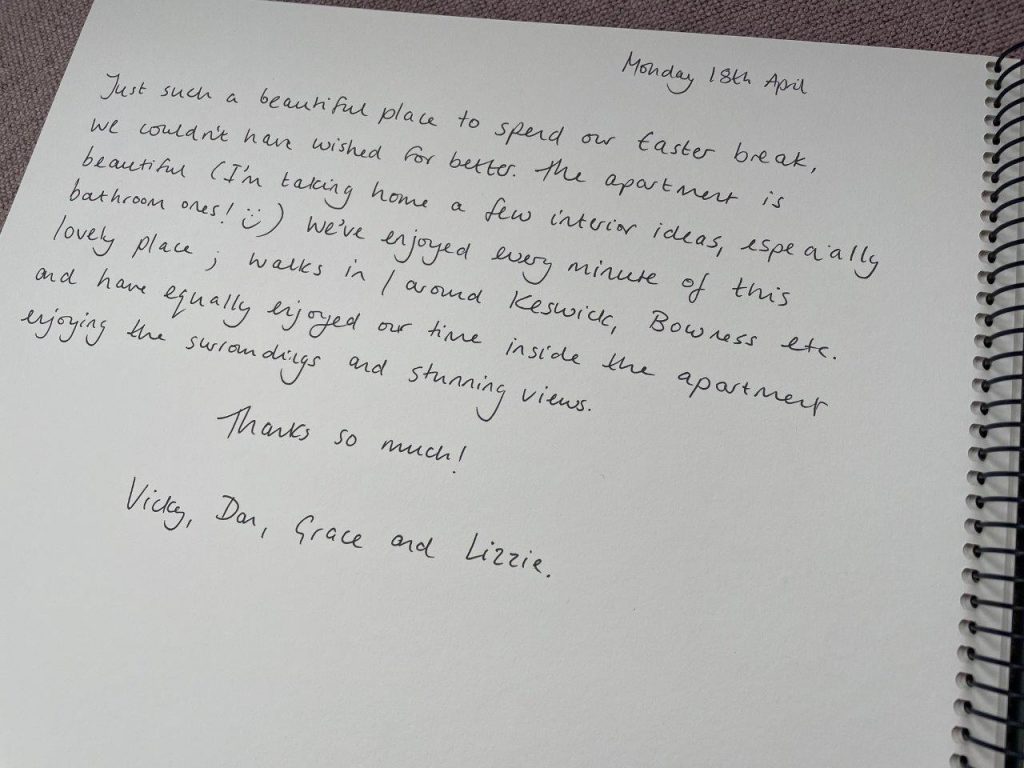 Monday 18th April
Just such a beautiful place to spend our Easter break,
we couldn't have wished for better. The apartment is
beautiful (I'm taking home a few interior ideas, especially
bathroom ones! :)) We've enjoyed every minute of this
lovely place; walks in / around Keswick, Bowness etc.
and have equally enjoyed our time inside the apartment
enjoying the surroundings and stunning views.
Thanks so much!
Vicky, Dan, Grace and Lizzie.